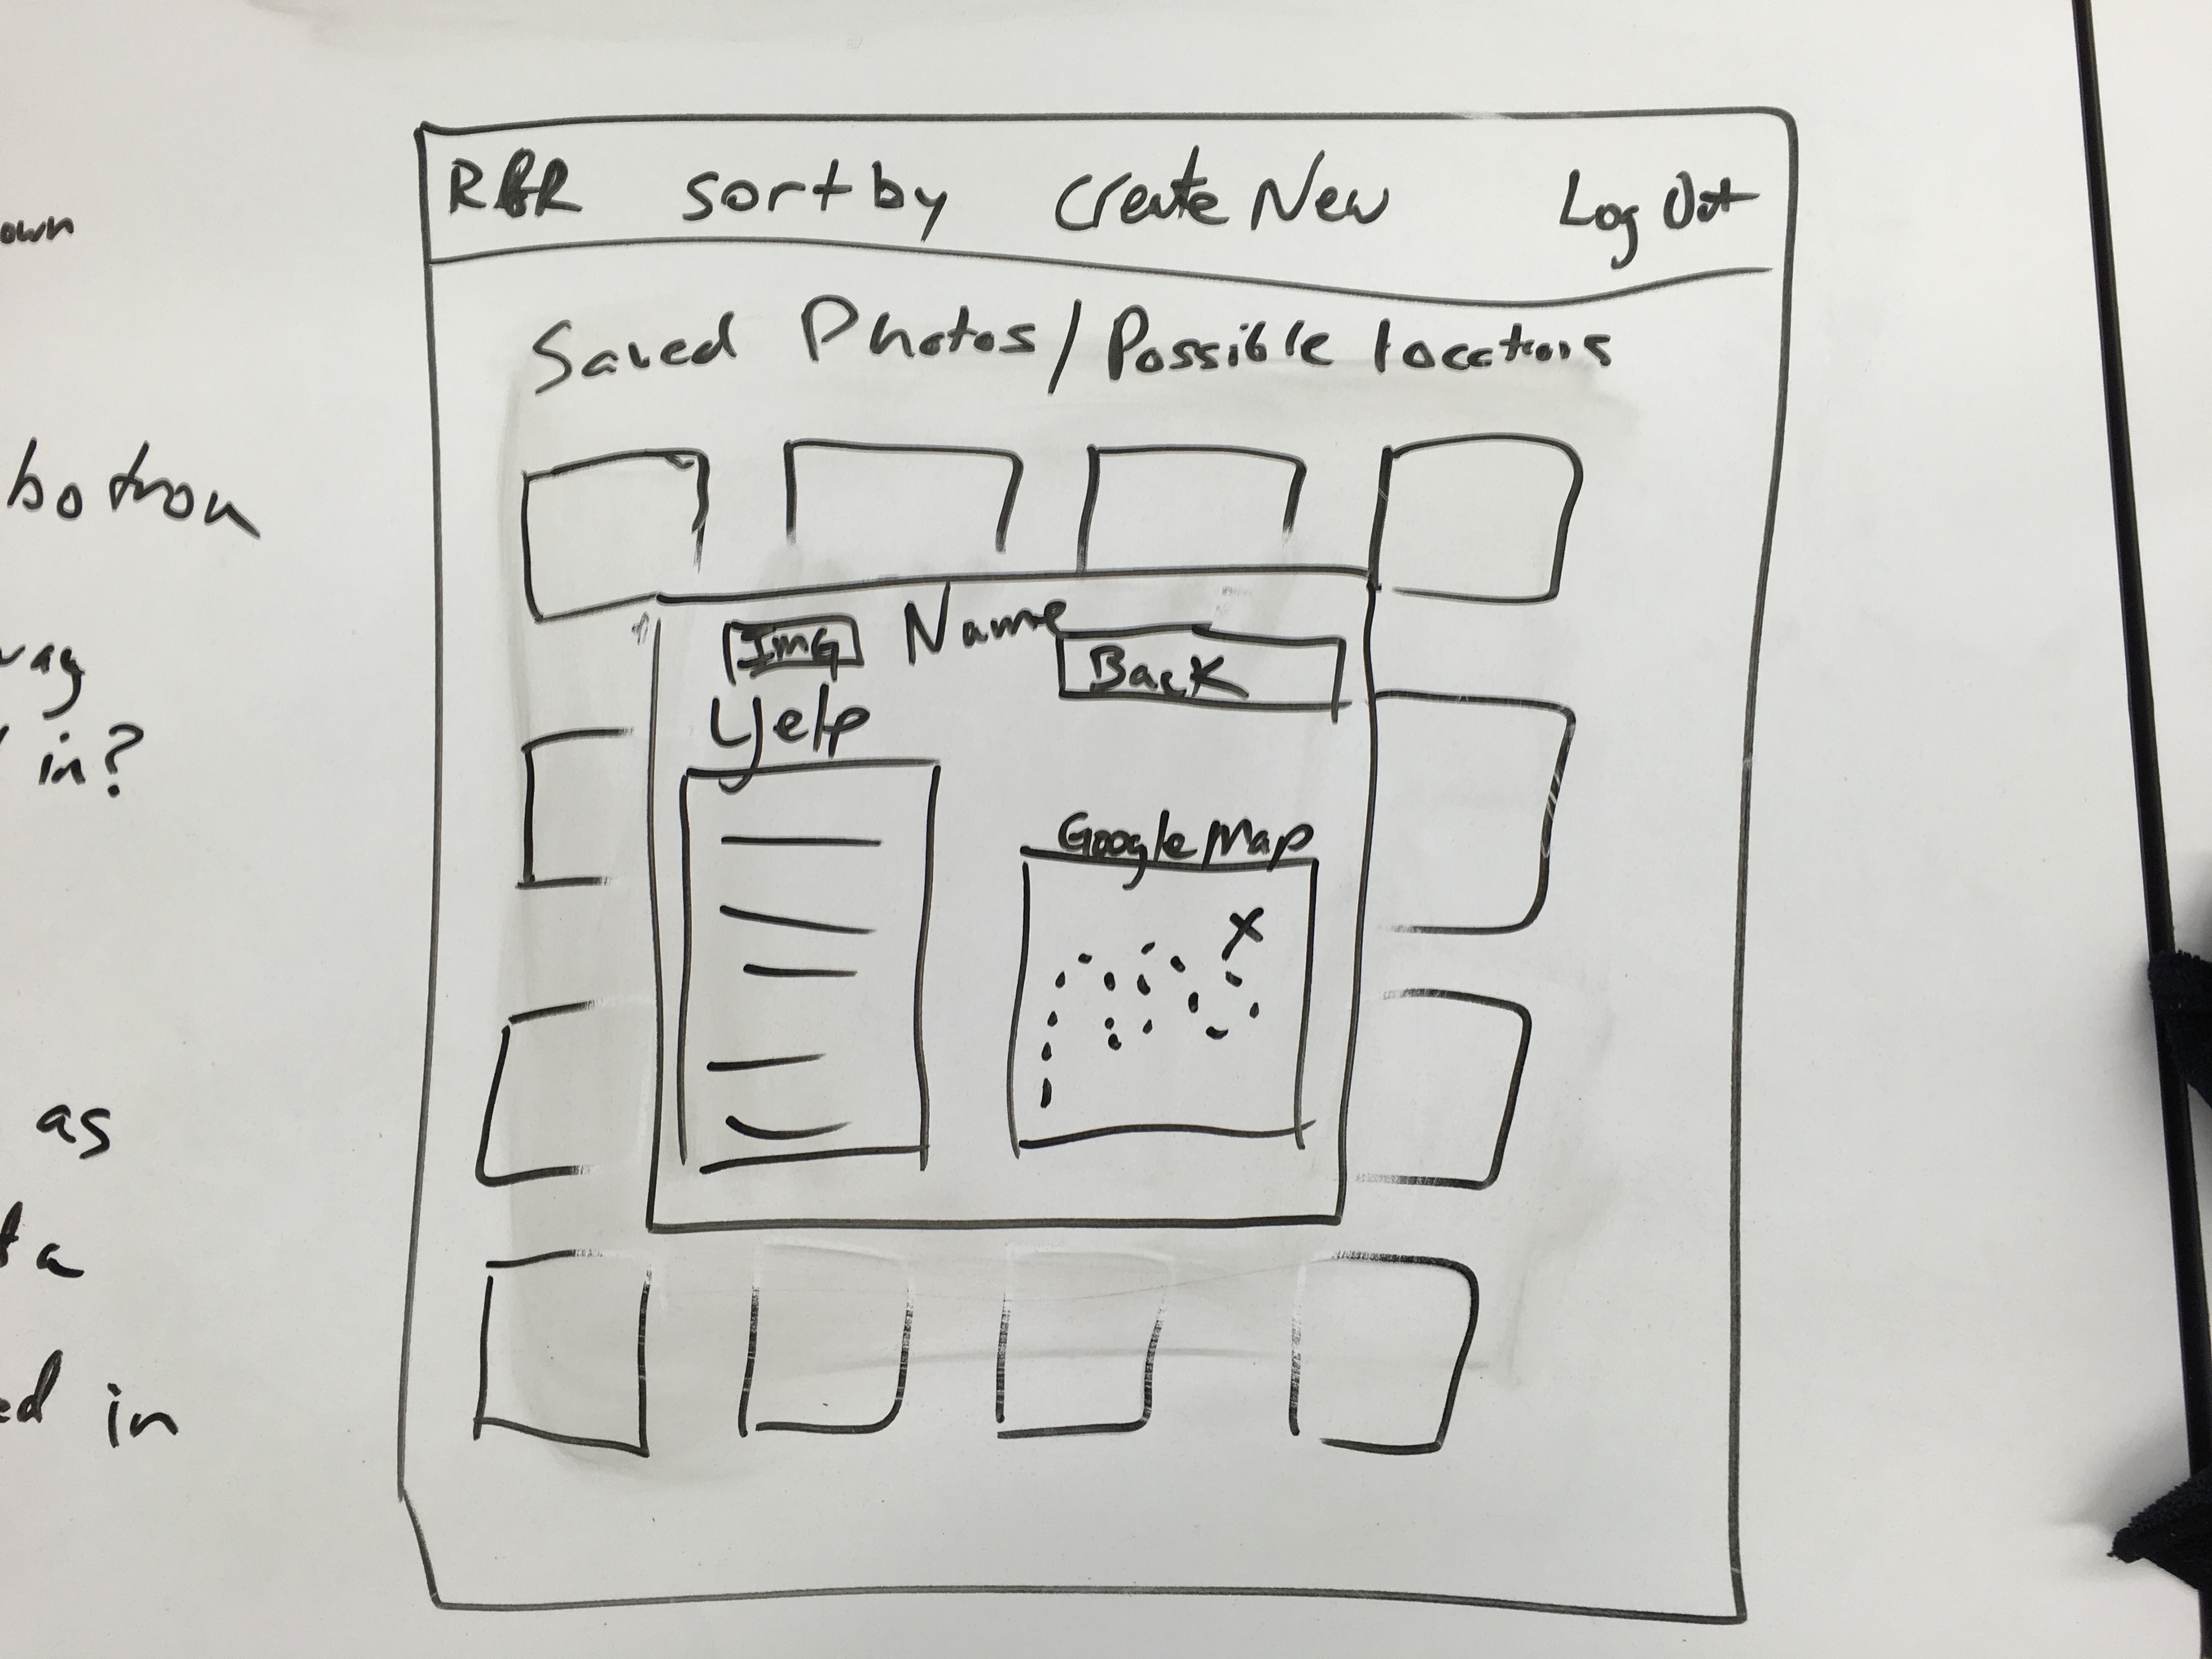 own
botton
in?
as
in
RBR sort by Create New Log Out
Saved Photos/Possible locations
Img Name Back
Yelp
Google Map
X